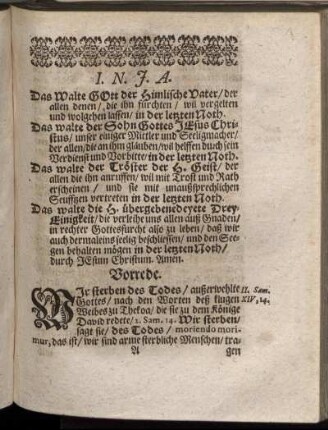 I. N. J. A.
Das Walte GOtt der Himlische Vater/ der
allen denen/ die ihn fürchten/ wil vergelten
und wolgehen lassen/ in der letzten Noth.
Das walte der Sohn Gottes JEsus Chri-
stus/ unser einiger Mittler und Seeligmacher/
der allen/ die an ihn gläuben/ wil helffen durch sein
Verdienst und Vorbitte/ in der letzten Noth.
Das walte der Tröster der H. Geist/ der
allen die ihn anruffen/ wil mit Trost und Rath
erscheinen/ und sie mit unaußsprechlichen
Seufftzen vertreten in der letzten Noth.
Das walte die H. übergebenedeyete Drey-
Einigkeit/ die verleihe uns allen auß Gnaden/
in rechter Gottesfurcht also zu leben/ daß wir
auch dermaleins seelig beschliessen/ und den See-
gen behalten mögen in der letzten Noth/
durch JEsum Christum. Amen.
Vorrede.
WIr sterben des Todes/ außerwehlte II. Sam.
Gottes/ nach den Worten deß klugen XIV, 14.
Weibes zu Thekoa/ die sie zu dem Könige
David redete/ 2. Sam. 14. Wir sterben/
sagt sie/ des Todes/ moriendo mori-
mur, das ist/ wir sind arme sterbliche Menschen/ tra-
A gen